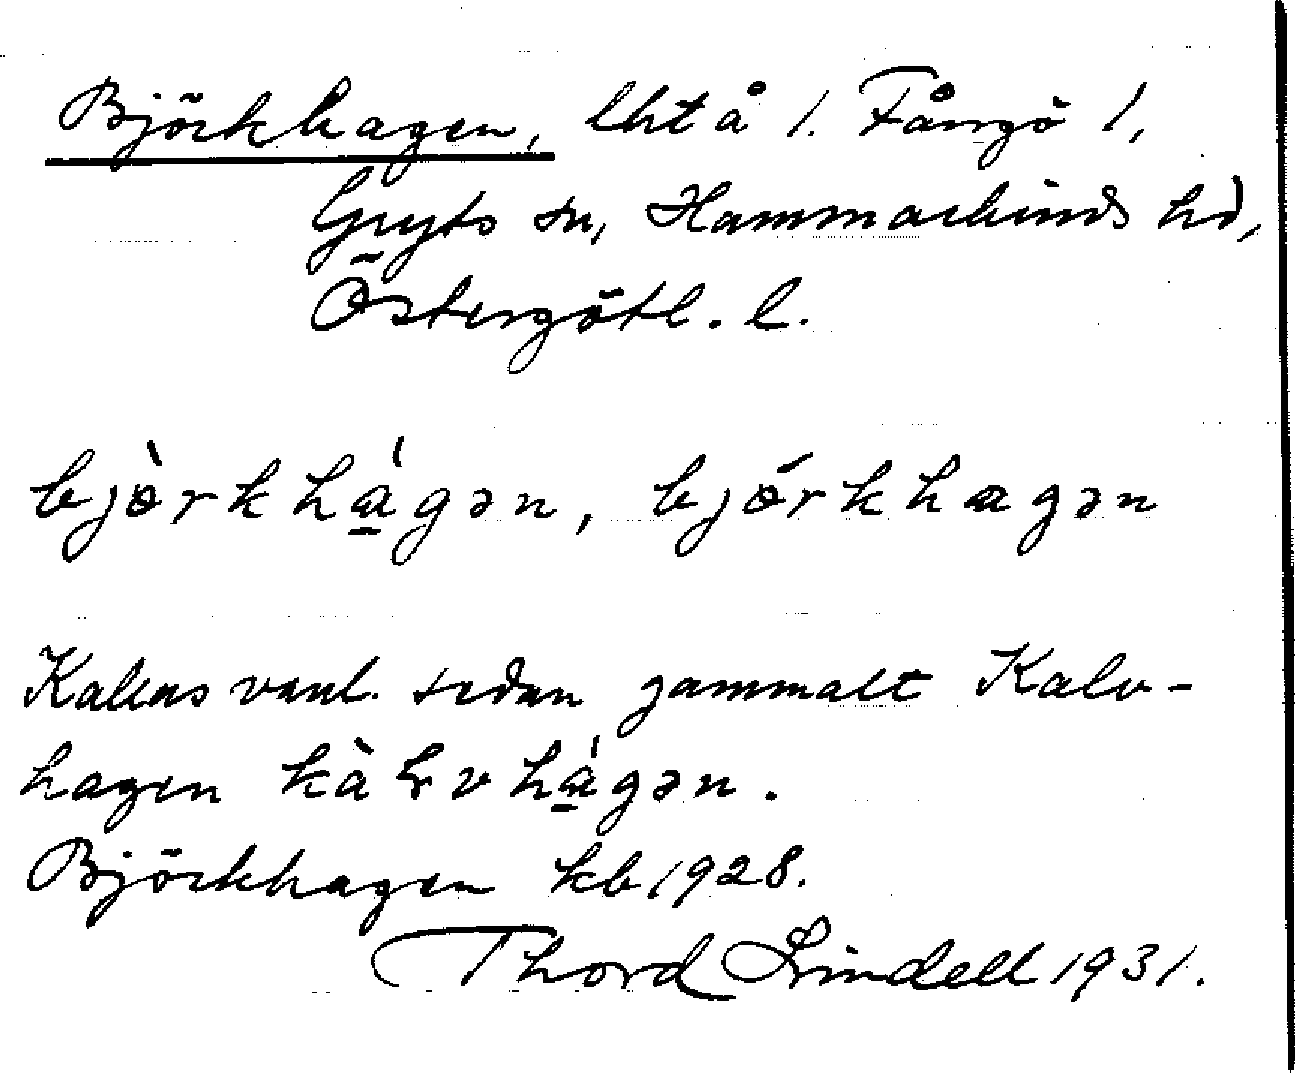 Björkhagen, lht å 1. Fångö 1,
Gryts sn, Hammarkinds hd,
Östergötl. l.
bjò̀rkhà̱́gən, bjǿrkhagən
Kallas vanl. sedan gammalt Kalv-
hagen kàɽvhà̱́gən.
Björkhagen kb 1928.
Thord Lindell 1931.